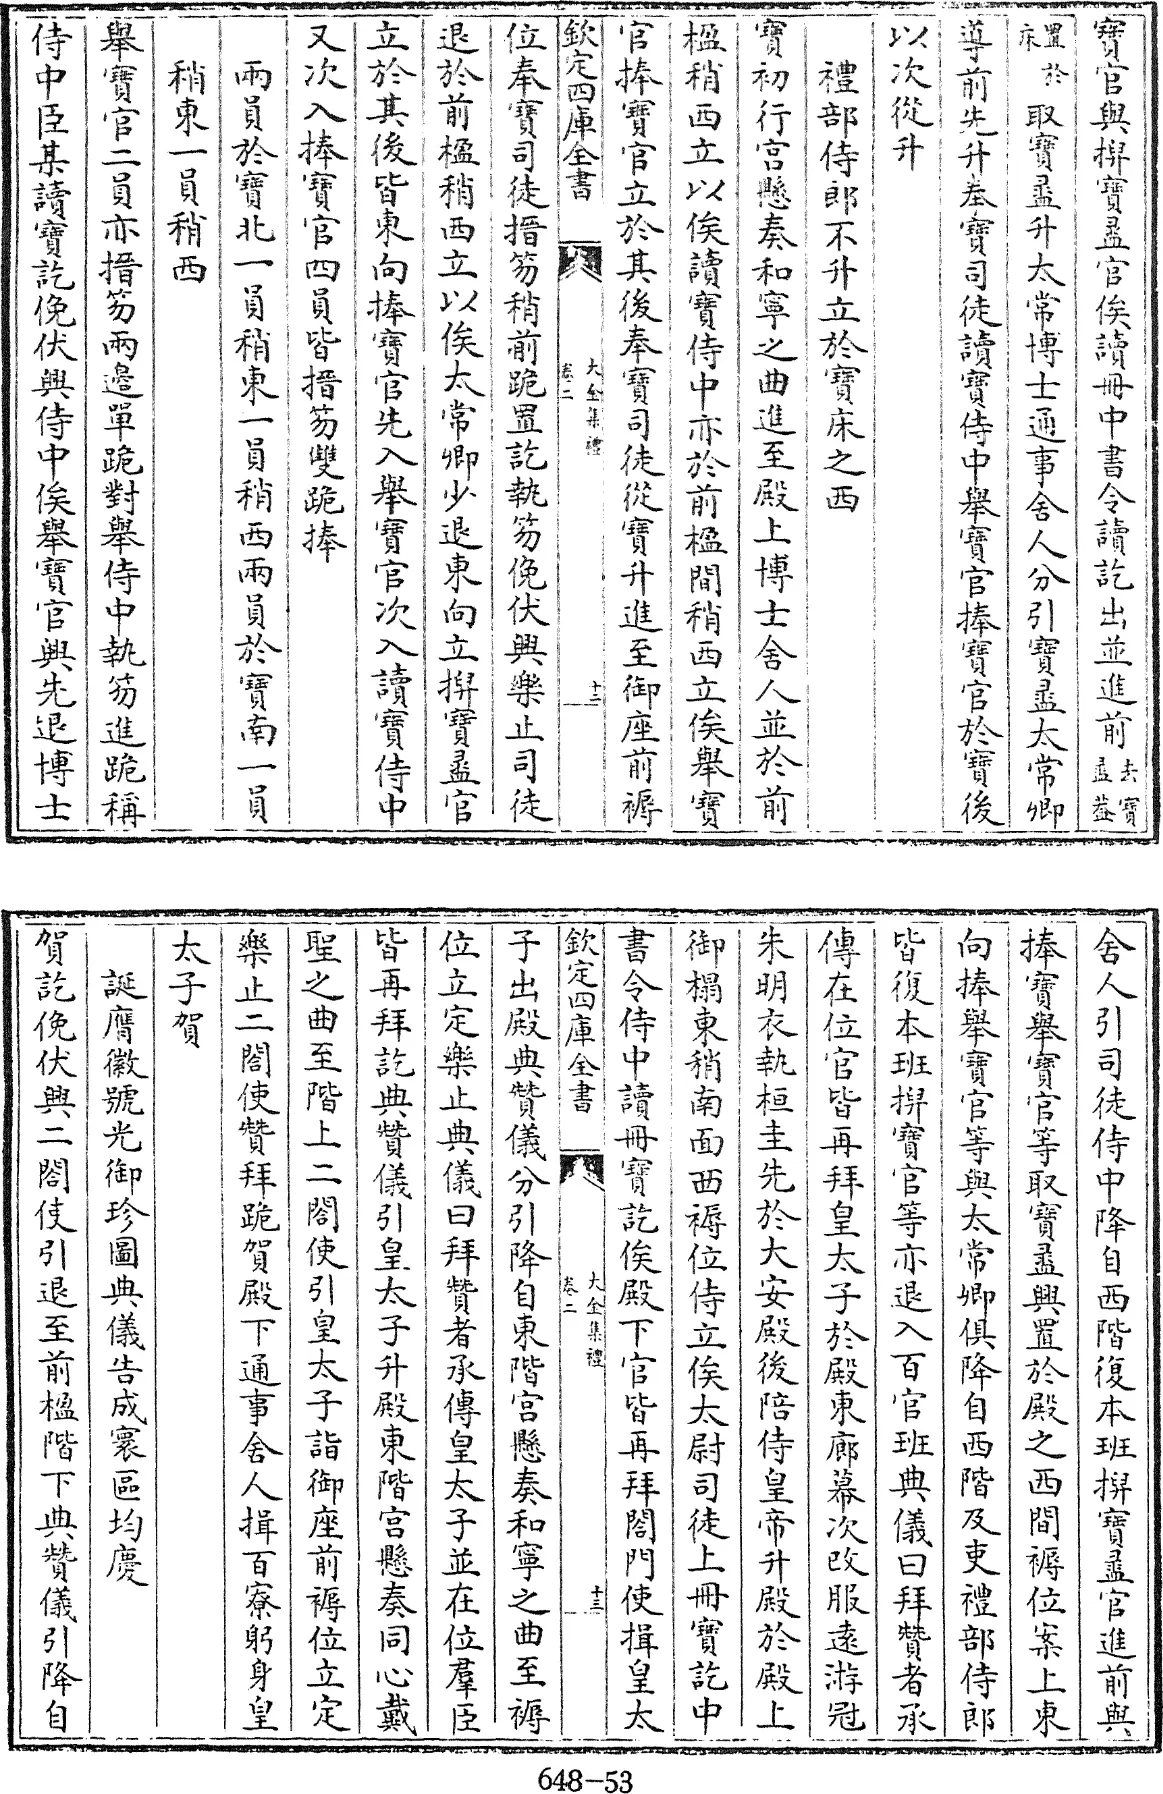 寶官與搿寶盝官俟讀冊中書令讀訖出並進前去寶盝葢
置於床取寶盝升太常博士通事舍人分引寶盝太常卿
導前先升奉寶司徒讀寶侍中舉寶官捧寶官於寶後
以次從升
禮部侍郎不升立於寶床之西
寶初行宮懸奏和寧之曲進至殿上博士舍人並於前
楹稍西立以俟讀寶侍中亦於前楹間稍西立俟舉寶
官捧寶官立於其後奉寶司徒從寶升進至御座前褥
欽定四庫全書 大金集禮 卷二 十二
位奉寶司徒搢笏稍前跪置訖執笏俛伏興樂止司徒
退於前楹稍西立以俟太常卿少退東向立搿寶盝官
立於其後皆東向捧寶官先入舉寶官次入讀寶侍中
又次入捧寶官四員皆搢笏雙跪捧
兩員於寶北一員稍東一員稍西兩員於寶南一員
稍東一員稍西
舉寶官二員亦搢笏兩邉單跪對舉侍中執笏進跪稱
侍中臣某讀寶訖俛伏興侍中俟舉寶官興先退博士
舍人引司徒侍中降自西階復本班搿寶盝官進前與
捧寶舉寶官等取寶盝興置於殿之西間褥位案上東
向捧舉寶官等與太常卿俱降自西階及吏禮部侍郎
皆復本班搿寶官等亦退入百官班典儀曰拜贊者承
傳在位官皆再拜皇太子於殿東廊幕次改服逺游冠
朱明衣執桓圭先於大安殿後陪侍皇帝升殿於殿上
御榻東稍南面西褥位侍立俟太尉司徒上冊寶訖中
書令侍中讀冊寶訖俟殿下官皆再拜閤門使揖皇太
欽定四庫全書 大金集禮 卷二 十三
子出殿典贊儀分引降自東階宮懸奏和寧之曲至褥
位立定樂止典儀曰拜贊者承傳皇太子並在位羣臣
皆再拜訖典贊儀引皇太子升殿東階宮懸奏同心戴
聖之曲至階上二閤使引皇太子詣御座前褥位立定
樂止二閤使贊拜跪賀殿下通事舍人揖百寮躬身皇
太子賀
誕膺徽號光御珍圖典儀告成寰區均慶
賀訖俛伏興二閤使引退至前楹階下典贊儀引降自
648-53